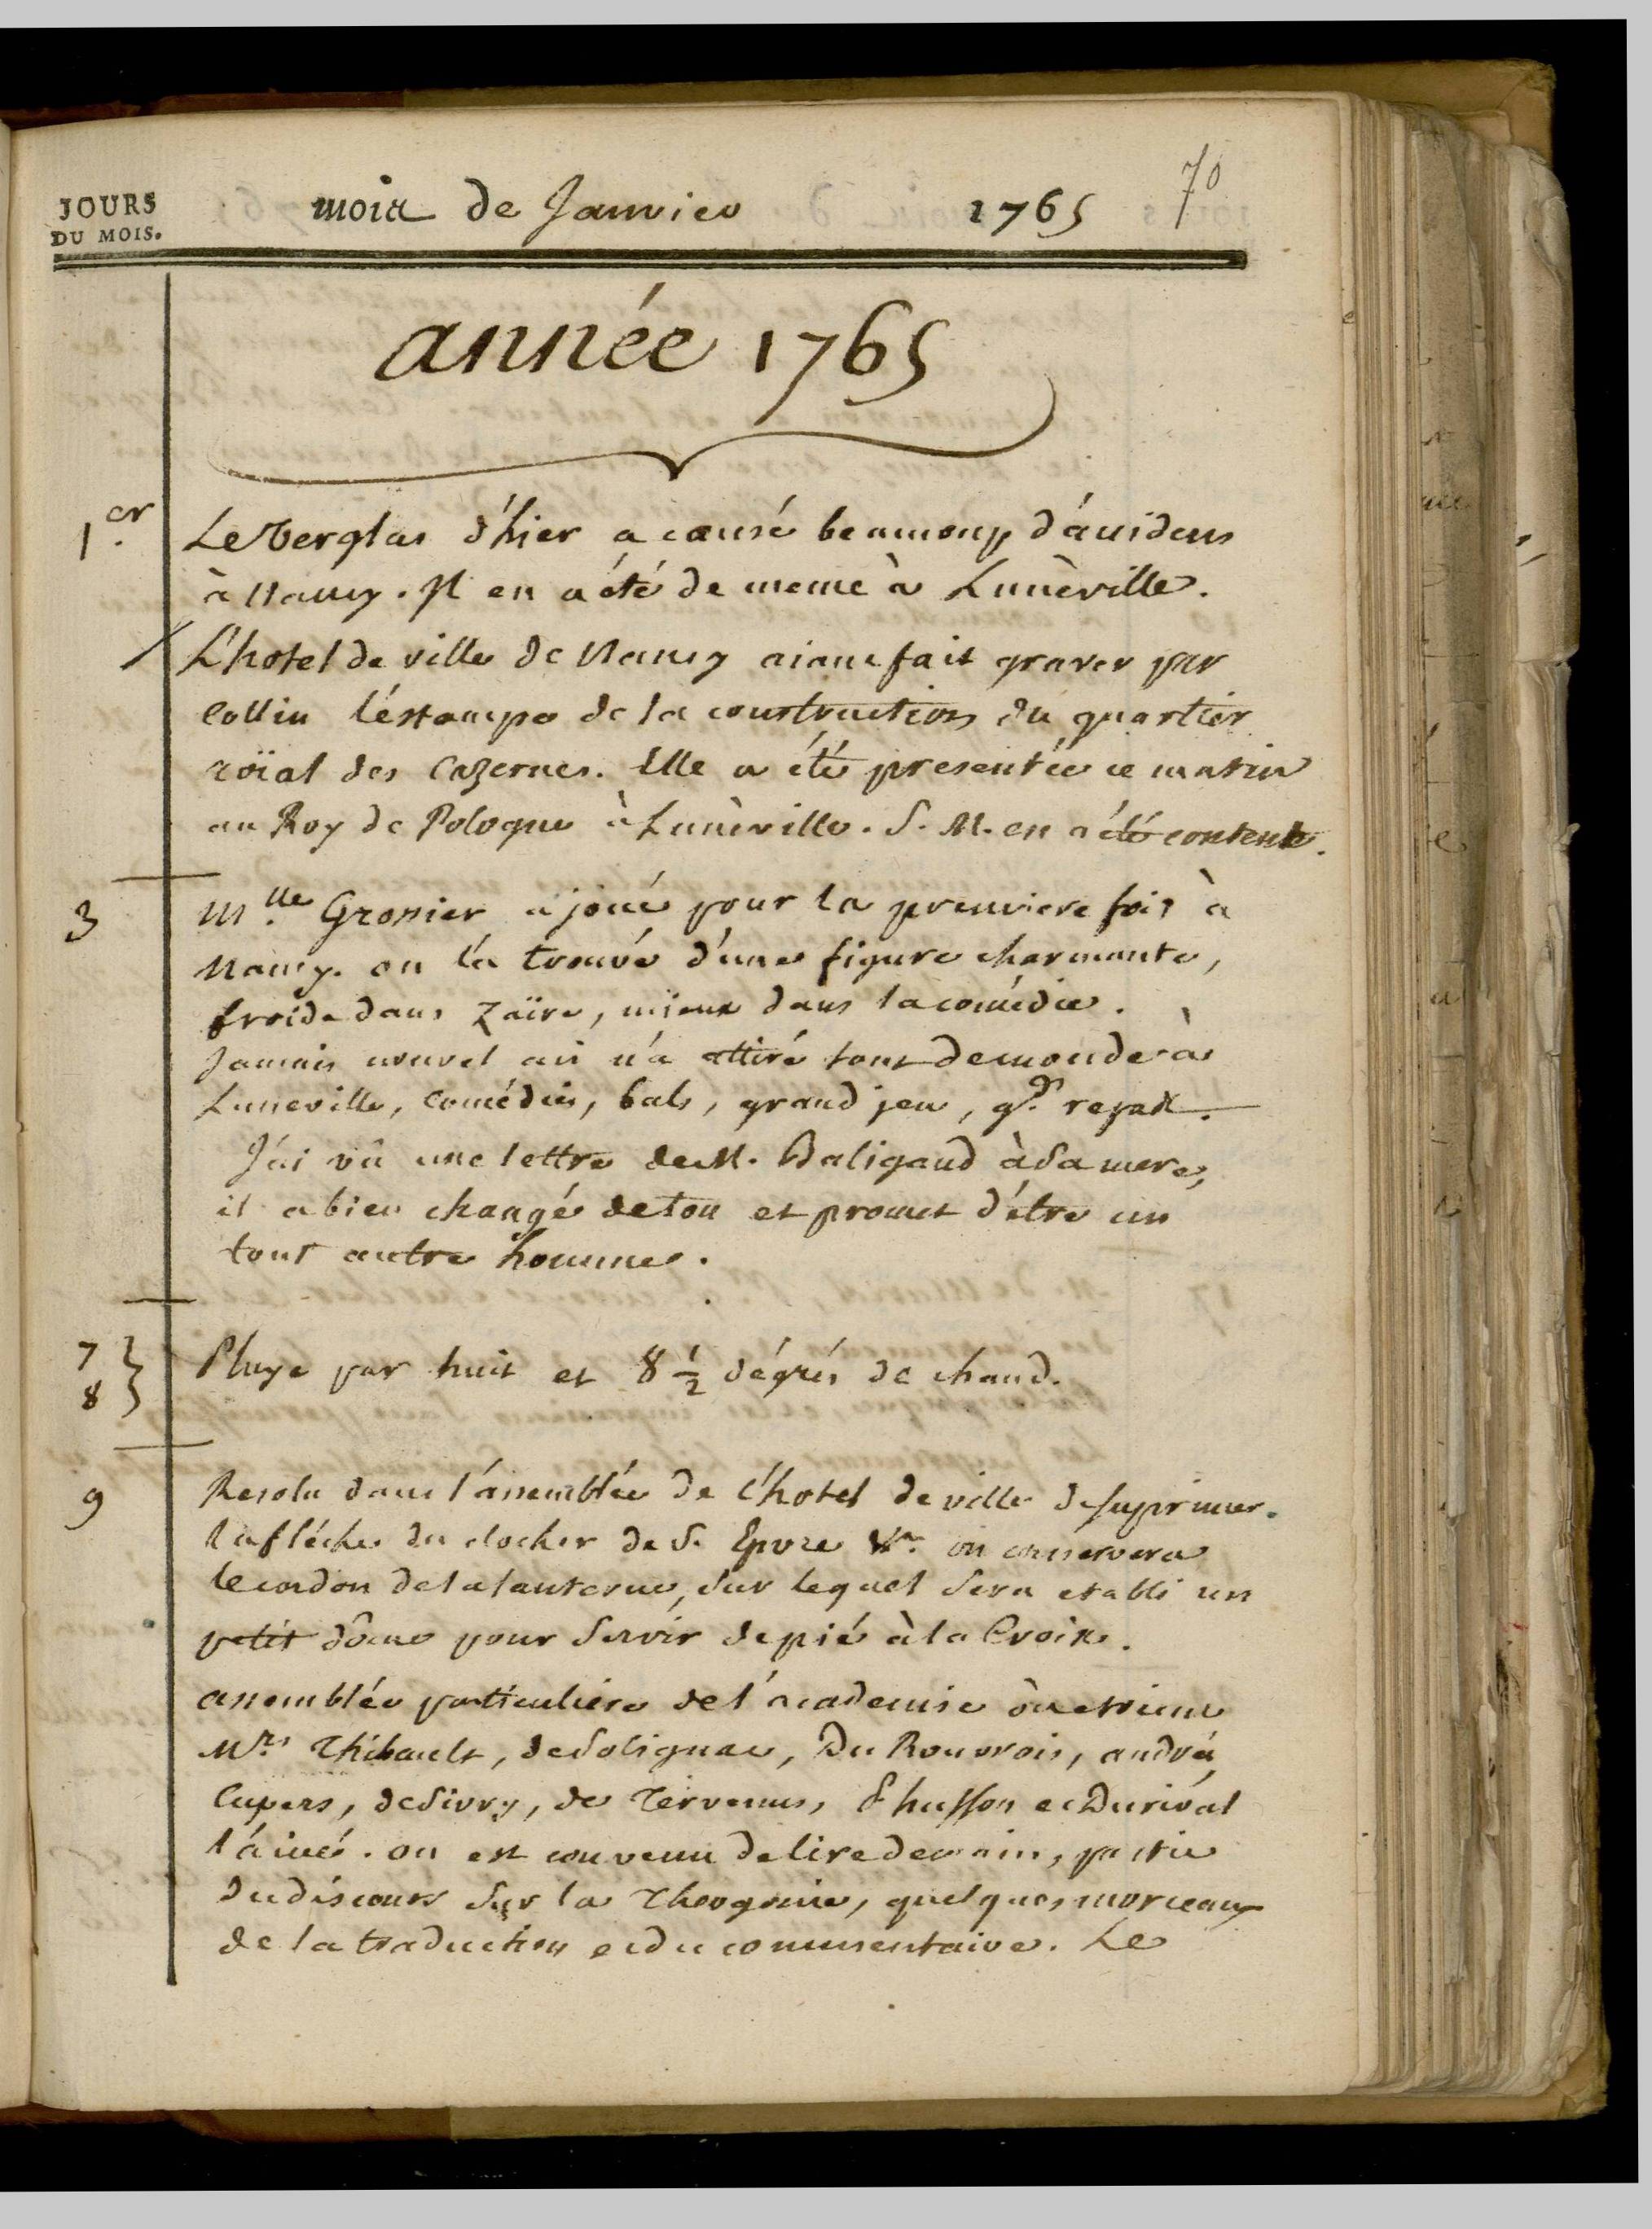 70
JOURS DU MOIS.
mois de Janvier 1765
année 1765
1.er Le Verglas d'hier a causé beaucoup d'accidens
à Nancy. Il en a été de meme à Lunèville.
L'hotel de ville de Nancy aiant fait graver par
Collin l'éstampe de la construction du quartier
roïal des Cazernes. Elle a été presentée ce matin
au Roy de Pologne à Lunèville. S. M. en a été contente.
3 M.lle Grosier a joué pour la premiere fois à
Nancy. on l'a trouvé d'une figure charmante,
froide dans Zaïre, mieux dans la comédie.
Jamais nouvel an n'a attiré tant de monde à
Luneville, Comédies, bals, grand jeu, g.d repas.
J'ai vû une lettre de M. Baligand à Sa mere,
il a bien changé de ton et promet d'étre un
tout autre homme.
7
8 } Pluye par huit et 8 1/2 dégrés de chaud.
9 Resolu dans l'assemblée de l'hotel de ville de suprimer
la fléche du clocher de S. Epvre on conservera
le cordon de la lanterne, Sur lequel Sera etabli un
petit dôme pour Servir de pié à la Croix.
assemblée particuliere de l'academie où etoient
M.rs Thibault, de Solignac, Du Rouvrois, andré,
Cupers, de Sivry, de Tervenus, l'husson et Durival
l'ainé. on est convenu de lire demain, partie
du discours Sur la Theogonie, quelques morceaux
de la traduction et du commentaire. Le